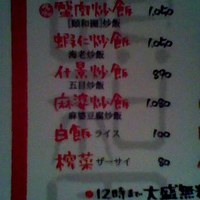 蟹肉炒飯 1,050
[頤和園]炒飯
蝦仁炒飯 1,050
海老炒飯
什景炒飯 890
五目炒飯
麻婆炒飯 1,080
麻婆豆腐炒飯
白飯 ライス 100
榨菜 ザーサイ 80
●12時まで大盛無料